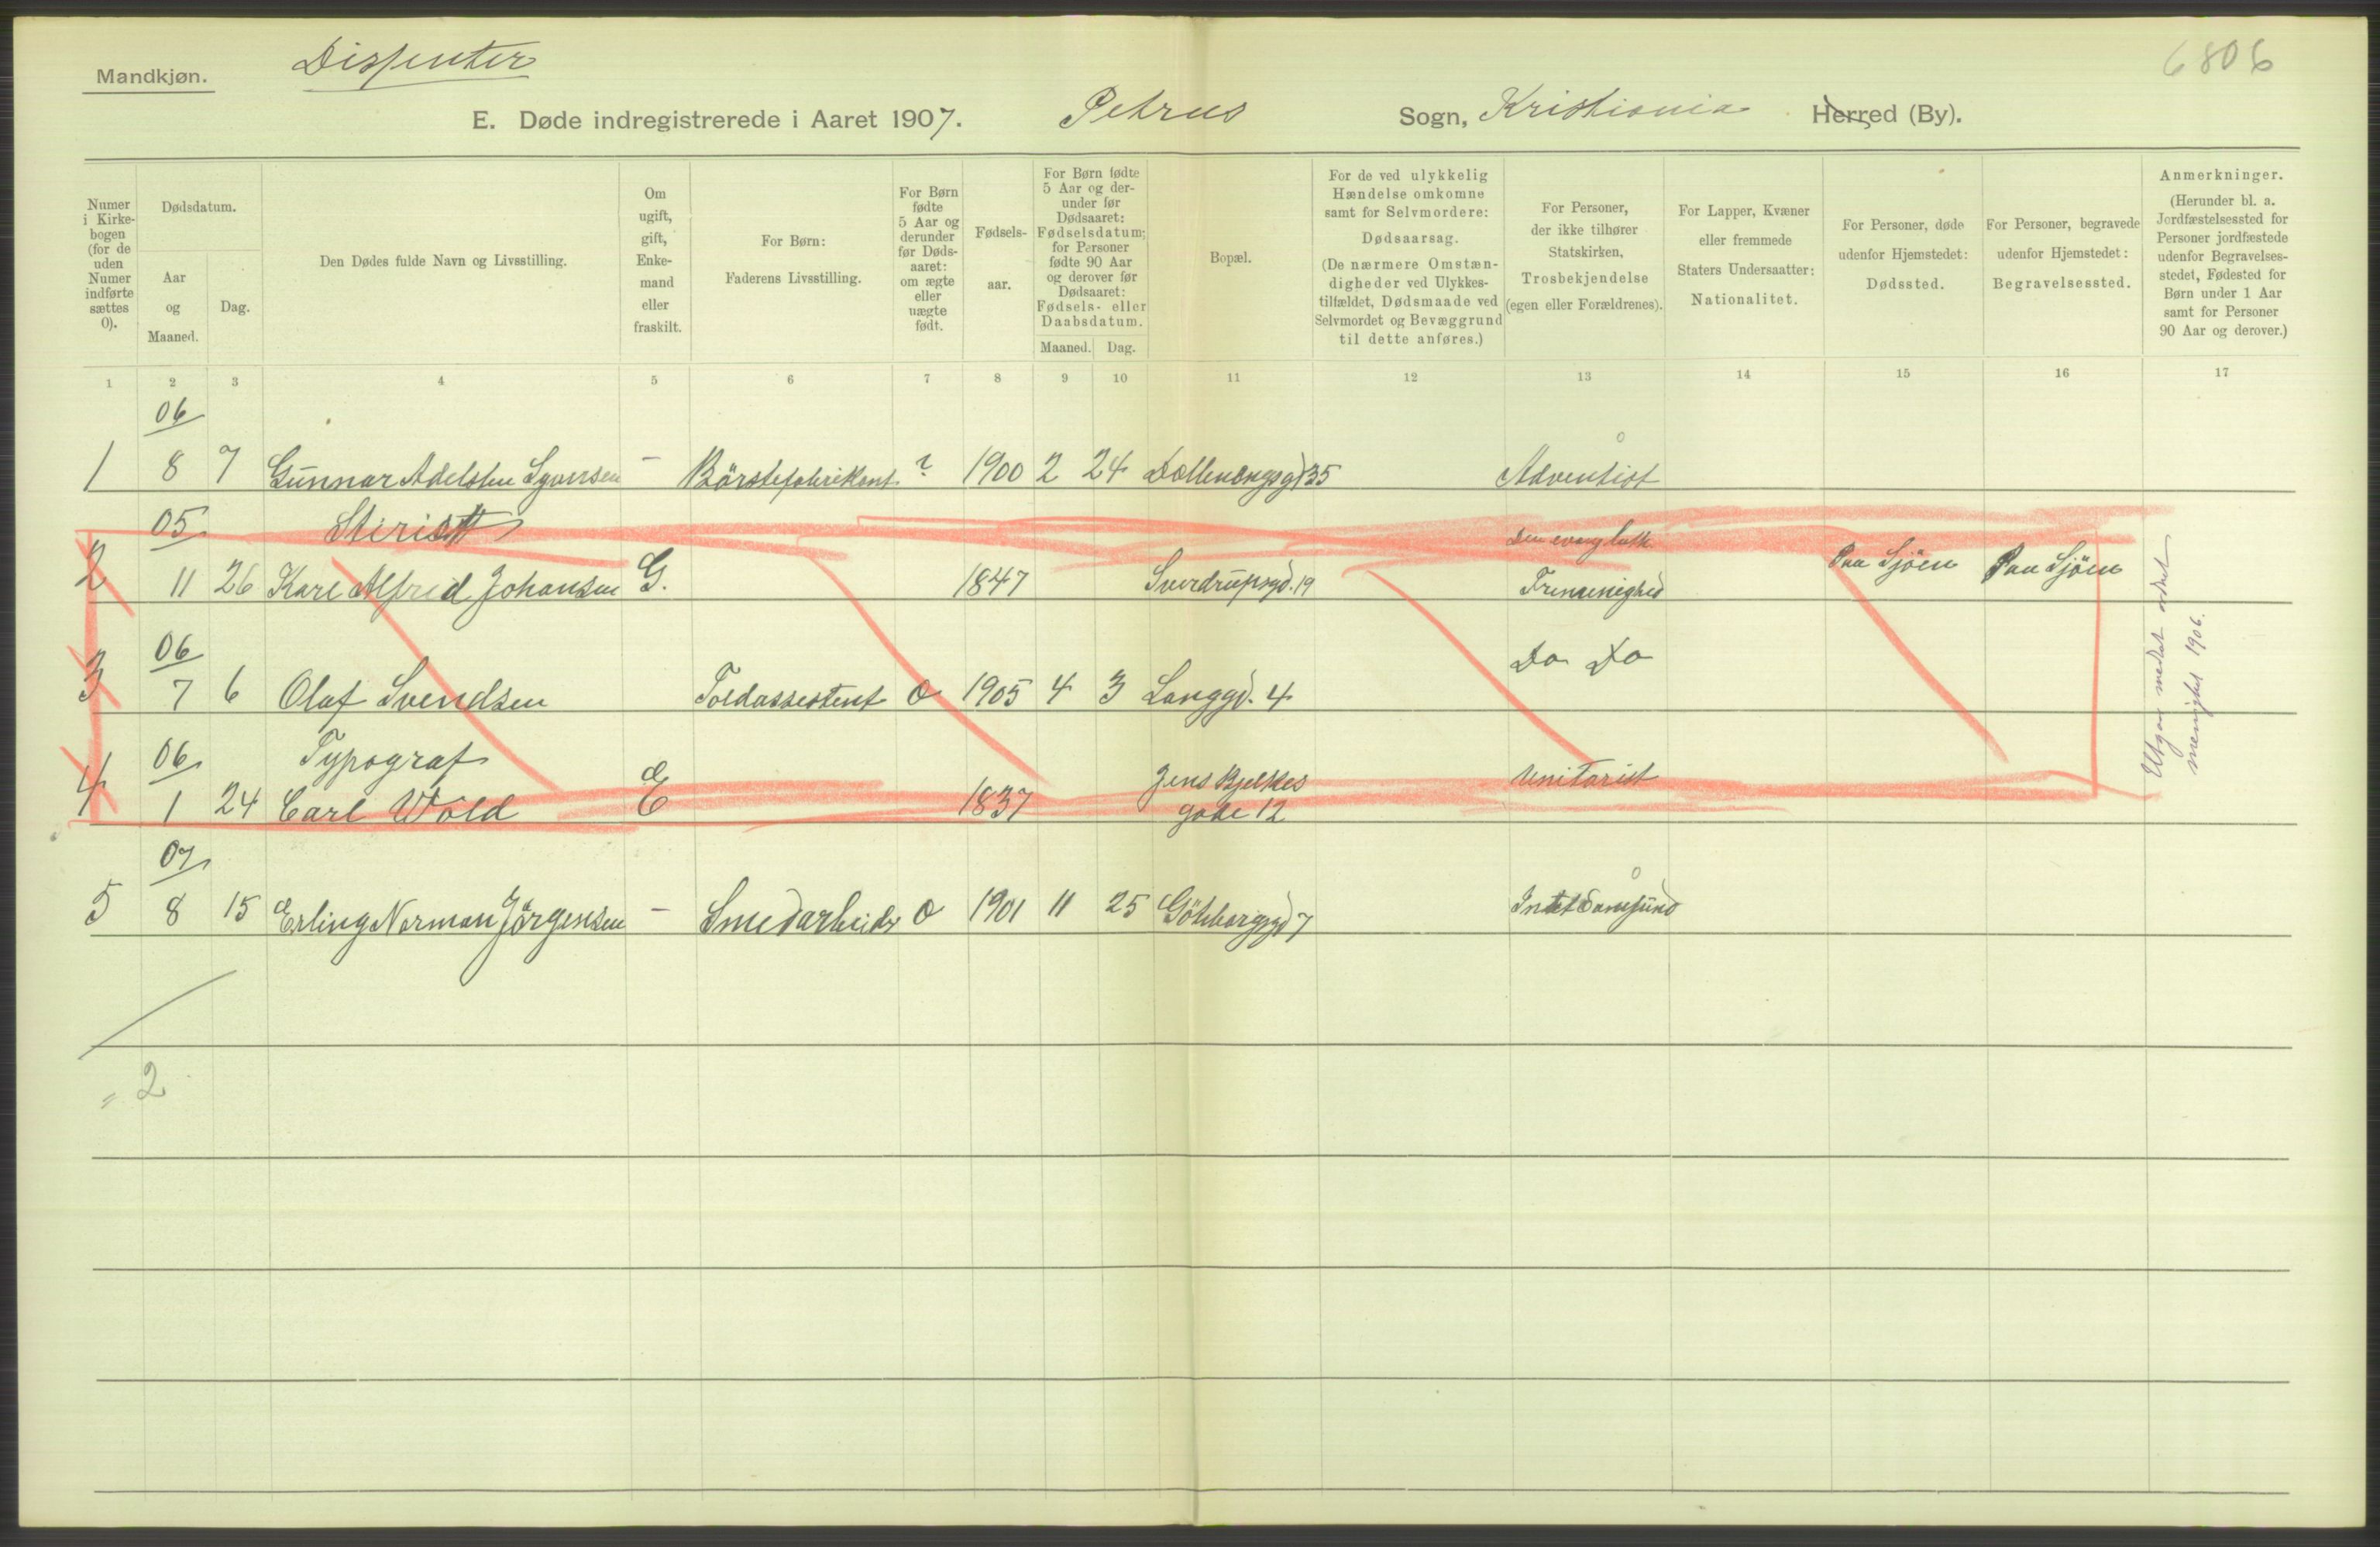 Mandkjøn.
Dissenter
6806
E. Døde indregistrerede i Aaret 1907. Petrus Sogn, Kristiania Herred (By).
Numer i Kirkebogen (for de uden Numer indførte sættes 0).
Dødsdatum.
Aar og Maaned.
Dag.
Den Dødes fulde Navn og Livsstilling.
Om ugift, gift, Enkemand eller fraskilt.
For Børn:
Faderens Livsstilling.
For Børn fødte 5 Aar og derunder før Dødsaaret: om ægte eller uægte født.
Fødselsaar.
For Børn fødte 5 Aar og derunder før Dødsaaret: Fødselsdatum; for Personer fødte 90 Aar og derover før Dødsaaret: Fødsels- eller Daabsdatum.
Maaned. Dag.
Bopæl.
For de ved ulykkelig Hændelse omkomne samt for Selvmordere: Dødsaarsag. (De nærmere Omstændigheder ved Ulykkestilfældet, Dødsmaade ved Selvmordet og Bevæggrund til dette anføres.)
For Personer, der ikke tilhører Statskirken, Trosbekjendelse (egen eller Forældrenes).
For Lapper, Kvæner eller fremmede Staters Undersaatter: Nationalitet.
For Personer, døde udenfor Hjemstedet: Dødssted.
For Personer, begravede udenfor Hjemstedet: Begravelsessted.
Anmerkninger.
(Herunder bl. a. Jordfæstelsessted for Personer jordfæstede udenfor Begravelsesstedet, Fødested for Børn under 1 Aar samt for Personer 90 Aar og derover.)
1 2 3 4 5 6 7 8 9 10 11 12 13 14 15 16 17
06
1 8 7 Gunnar Adelsten Syversen – Börstefabrikant ? 1900 2 24 Dællenengsgd 35 Adventist
05 Den evang luth.
2 11 26 Karl Alfred Johansen G. 1847 Sverdrupsgd. 19 Frimenighed Paa Sjöen Paa Sjöen
06 Do Do
3 7 6 Olaf Svendsen Toldassistent O 1905 4 3 Langgd. 4
06 Typograf Jens Bjelkes Unitarist
4 1 24 Carl Wold E 1837 gade 12
07
5 8 15 Erling Norman Jörgensen – Smedarbeider O 1901 11 25 Göteborggd 7 Intet Samfund
menighet 1906.
= 2